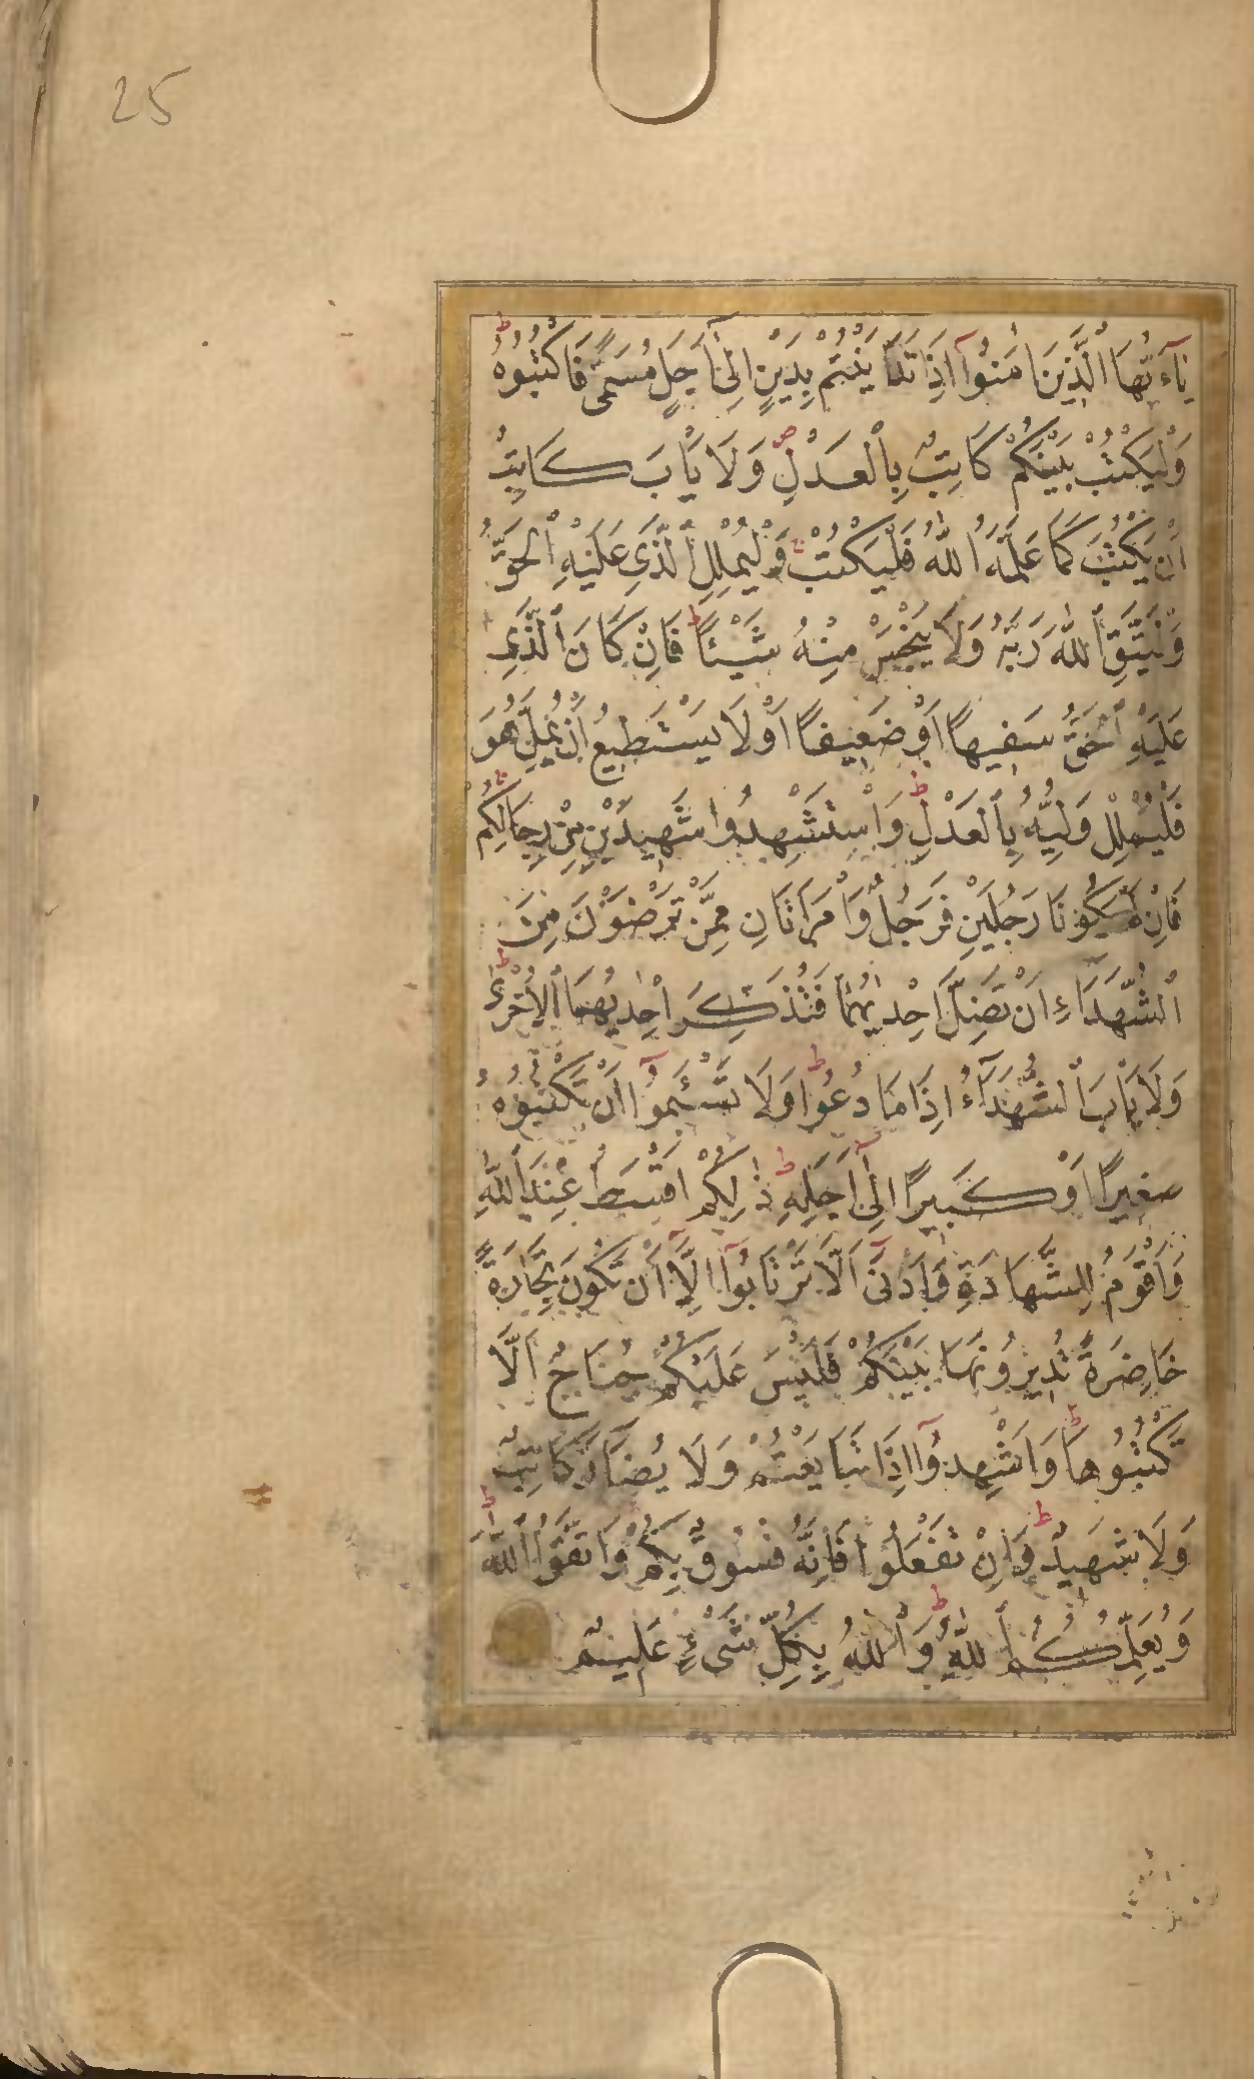 25
يَآءَيُّهَا الَّذِينَ اٰمَنُوٓا اِذَا تَدَايَنْتُمْ بِدَيْنٍ اِلٰٓى اَجَلٍ مُسَمًّى فَاكْتُبُوهُ ط
وَلْيَكْتُبْ بَيْنَكُمْ كَاتِبٌ بِالْعَدْلِ ص وَلَا يَاْبَ كَاتِبٌ
اَنْ يَكْتُبَ كَمَا عَلَّمَهُ اللّٰهُ فَلْيَكْتُبْ وَلْيُمْلِلِ الَّذِي عَلَيْهِ الْحَقُّ
وَلْيَتَّقِ اللّٰهَ رَبَّهُ وَلَا يَبْخَسْ مِنْهُ شَيْئًا ط فَاِنْ كَانَ الَّذِي
عَلَيْهِ الْحَقُّ سَفِيهًا اَوْ ضَعِيفًا اَوْ لَا يَسْتَطِيعُ اَنْ يُمِلَّ هُوَ
فَلْيُمْلِلْ وَلِيُّهُ بِالْعَدْلِ ط وَاسْتَشْهِدُوا شَهِيدَيْنِ مِنْ رِجَالِكُمْ
فَاِنْ لَمْ يَكُونَا رَجُلَيْنِ فَرَجُلٌ وَامْرَاَتَانِ مِمَّنْ تَرْضَوْنَ مِنَ
الشُّهَدَاءِ اَنْ تَضِلَّ اِحْدٰيهُمَا فَتُذَكِّرَ اِحْدٰيهُمَا الْاُخْرٰى ط
وَلَا يَاْبَ الشُّهَدَآءُ اِذَا مَا دُعُوا ط وَلَا تَسْئَمُوٓا اَنْ تَكْتُبُوهُ
صَغِيرًا اَوْ كَبِيرًا اِلٰٓى اَجَلِهِ ط ذٰلِكُمْ اَقْسَطُ عِنْدَ اللّٰهِ
وَاَقْوَمُ لِلشَّهَادَةِ وَاَدْنٰٓى اَلَّا تَرْتَابُوٓا اِلَّآ اَنْ تَكُونَ تِجَارَةً
حَاضِرَةً تُدِيرُونَهَا بَيْنَكُمْ فَلَيْسَ عَلَيْكُمْ جُنَاحٌ اَلَّا
تَكْتُبُوهَا ط وَاَشْهِدُوٓا اِذَا تَبَايَعْتُمْ وَلَا يُضَارَّ كَاتِبٌ
وَلَا شَهِيدٌ ط وَاِنْ تَفْعَلُوا فَاِنَّهُ فُسُوقٌ بِكُمْ وَاتَّقُوا اللّٰهَ ط
وَيُعَلِّمُكُمُ اللّٰهُ ط وَاللّٰهُ بِكُلِّ شَيْءٍ عَلِيمٌ